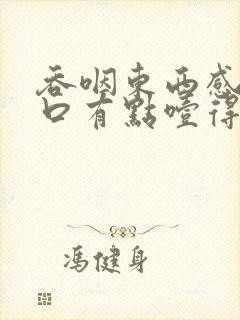 吞咽东西感
口有點噎得
馮健身